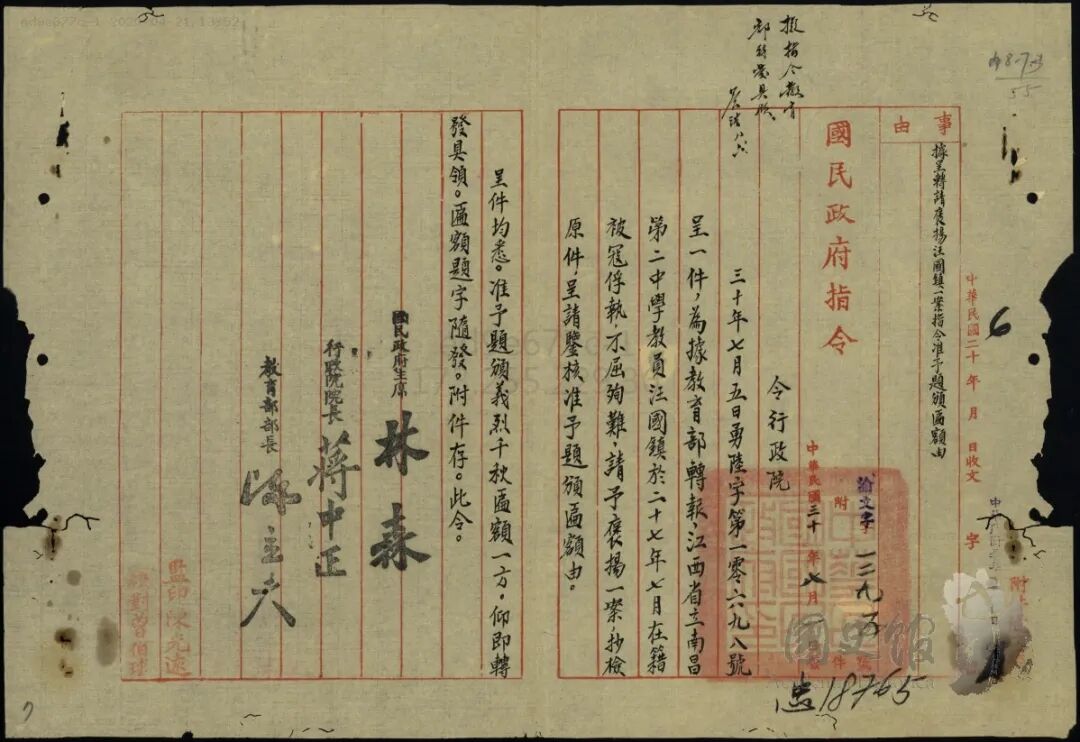 事由
據呈轉請褒揚汪國鎮一案指令准予題頒匾額由
中華民國二十 年 月 日收文 字
6
國民政府指令
渝文字
附
一三九五
號
件
中華民國三十年八月
令行政院
三十年七月五日勇陸字第一零六九八號
呈一件,為據教育部轉報,江西省立南昌
第二中學教員汪國鎮於二十七年七月在籍
被寇俘執,不屈殉難,請予褒揚一案,抄檢
原件,呈請鑒核准予題頒匾額由。
呈件均悉。准予題頒義烈千秋匾額一方,仰即轉
發具領。匾額題字隨發。附件存。此令。
國民政府主席 林森
行政院院長 蔣中正
教育部部長 陳立夫
監印陳光遠
校對曾伯球
國史館